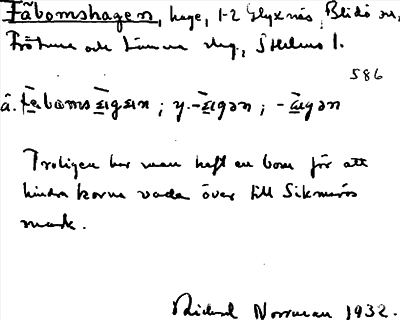 Fäbomshagen, hage, 1-2 Glyxnäs, Blidö sn,
Frötuna och Länna skg, Sthlms l.
586
ä. fębωms ęigεn; y. -ęigən; -äigən
Troligen har man haft en bom för att
hindra korna vada över till Sikmarös
mark.
Rickard Norrman 1932.